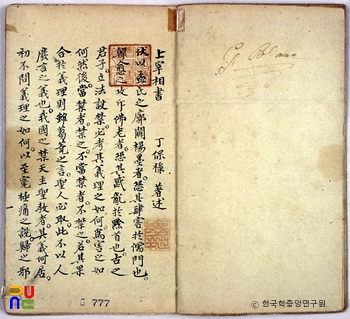 上宰相書 丁保祿 著述
伏以孟氏之廓闢楊墨者恐其肆害於儒門也
韓愈之攻斥佛老者恐其惑亂於黔首也古之
君子立法設禁必考其義理之如何爲害之如
何然後當禁者禁之不當禁者不禁之若其果
合於義理則蒭蕘之言聖人必取此不以人
廢言之義也我國之禁天主聖教者其義何居
初不問義理之如何以至寃極痛之說歸之邪
G. Blanc
5 777
ⓒ 한국학중앙연구원